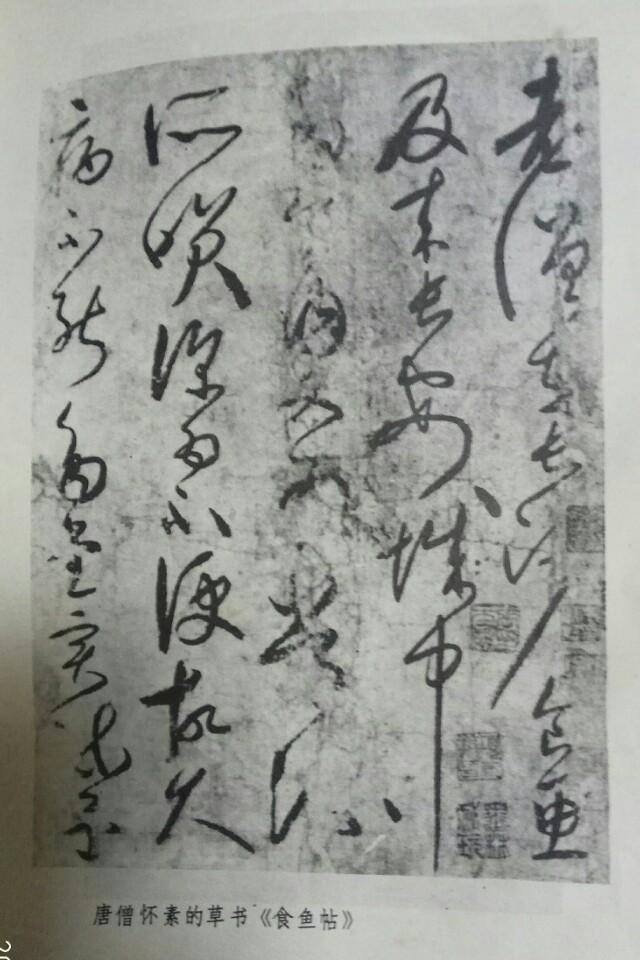 老僧在長沙食魚
及来長安城中
多食肉又為常流
所笑深為不便故久
病不能多書實疎
唐僧怀素的草书《食鱼帖》